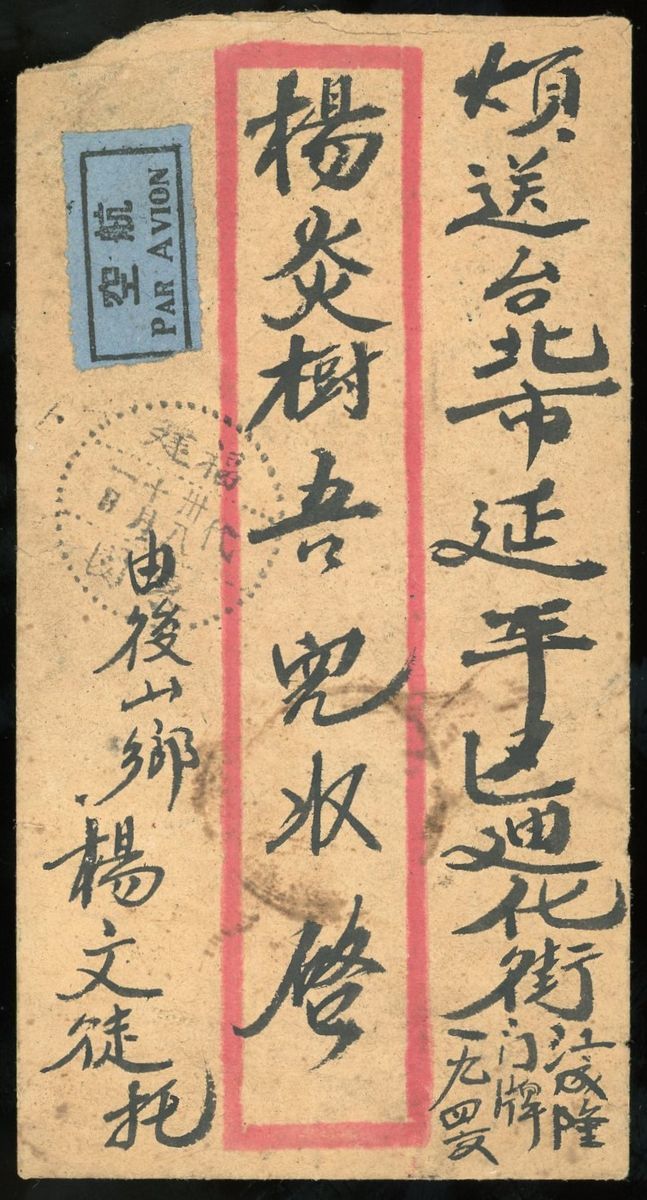 煩送台北市延平区迪化街
江成隆
门牌
一九四
楊炎樹吾兒收啓
航空
PAR AVION
福建
卅八
十月
一日
由後山鄉楊文徒托